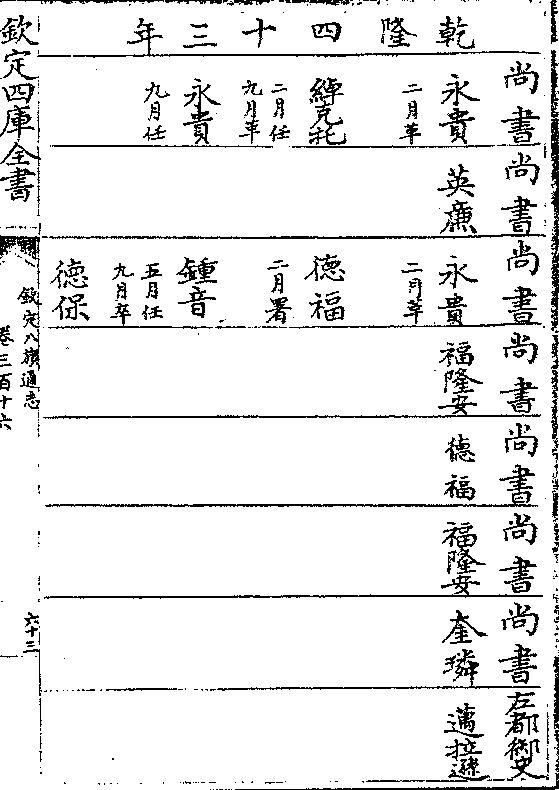 乾隆四十三年
尚書 永貴 二月革 綽克托 二月任 九月革 永貴 九月任
尚書 英廉
尚書 永貴 二月革 德福 二月署 鍾音 五月任 九月卒 德保
尚書 福隆安
尚書 德福
尚書 福隆安
尚書 奎璘
左都御史 邁拉遜
欽定四庫全書
欽定八旗通志
卷三百十六
六十三